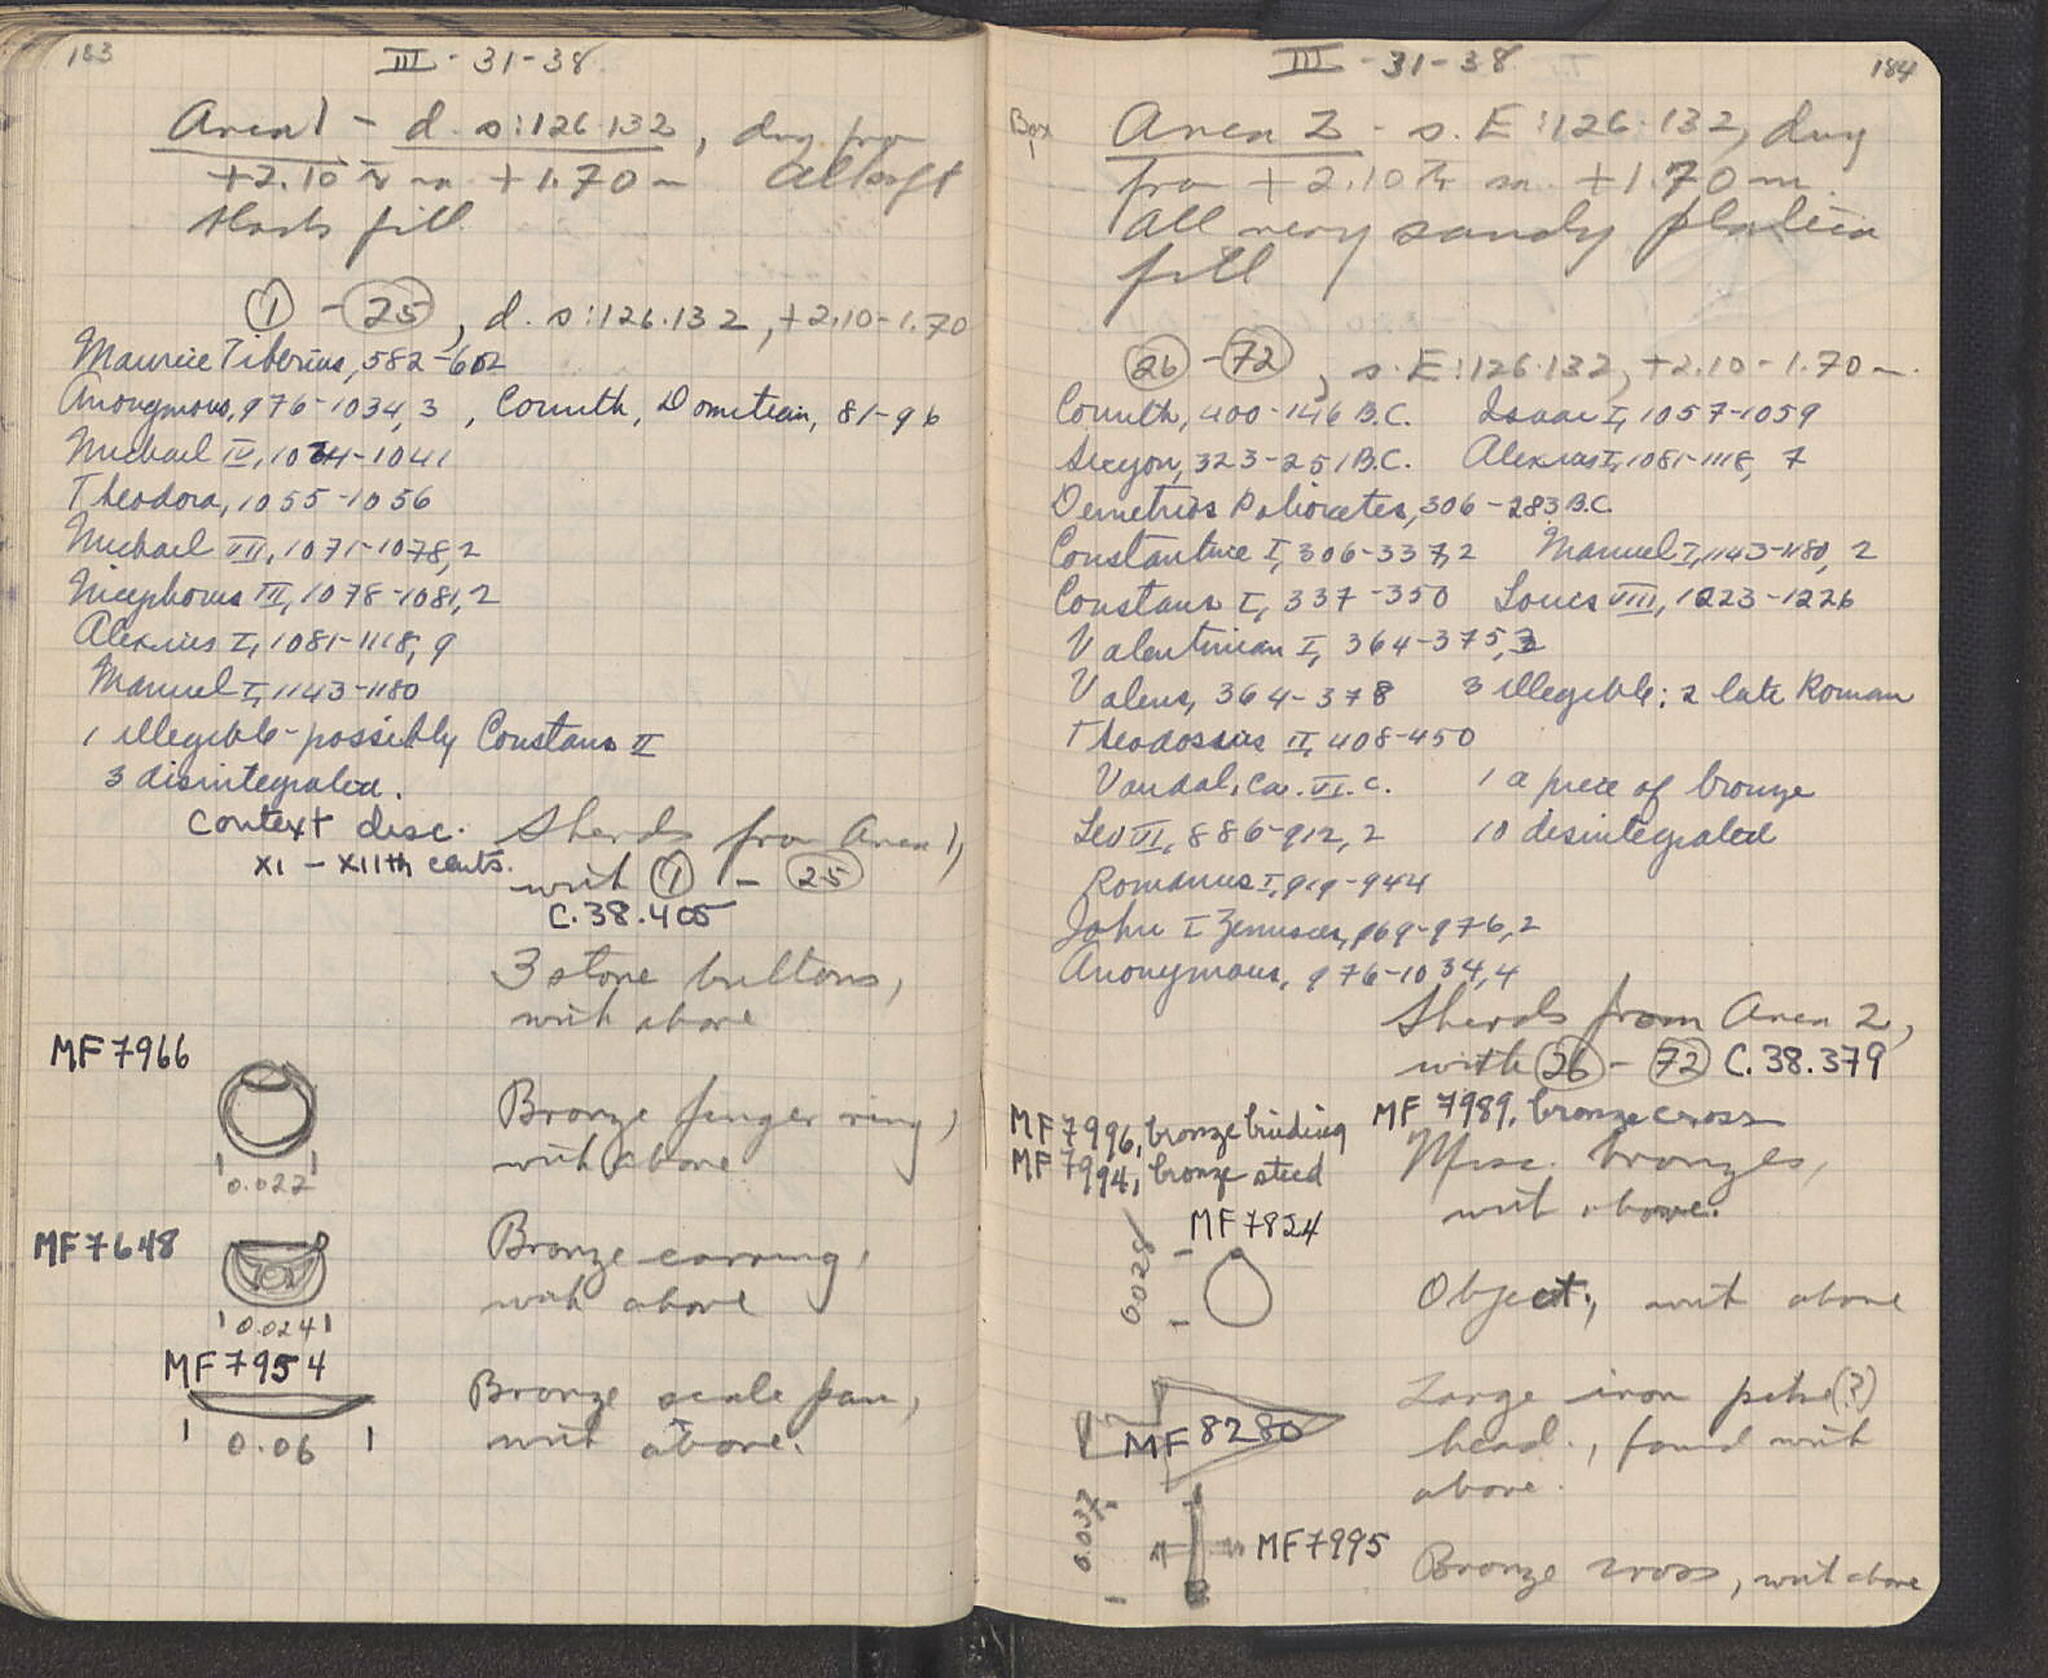 183
III - 31-38
Area 1 - d. s:126.132, dug from
+2.10 m +1.70 m All soft
black fill
① - ㉕, d. s:126.132, +2.10-1.70
Maurice Tiberius, 582-602
Anonymous, 976-1034, 3, Corinth, Domitian, 81-96
Michael IV, 1034-1041
Theodora, 1055-1056
Michael VII, 1071-1078, 2
Nicephorus III, 1078-1081, 2
Alexius I, 1081-1118, 9
Manuel I, 1143-1180
1 illegible - possibly Constans II
3 disintegrated.
Context disc.
XI - XIIth cents.
Sherds from Area 1,
with ① - ㉕
C.38.405
3 stone buttons,
with above
MF 7966
Bronze finger ring,
with above
0.022
MF 7648
Bronze earring,
with above
0.024
MF 7954
Bronze scale pan,
with above.
0.06
III - 31-38
184
Box
Area 2 - s. E:126.132, dug
from +2.10 m. +1.70 m.
All very sandy plateia
fill
(26) - (72), s. E:126.132, +2.10-1.70 m.
Corinth, 400-146 B.C. Isaac I, 1057-1059
Sicyon, 323-251 B.C. Alexius I, 1081-1118, 7
Demetrios Poliorcetes, 306-283 B.C.
Constantine I, 306-337, 2 Manuel I, 1143-1180, 2
Constans I, 337-350 Louis VIII, 1223-1226
Valentinian I, 364-375, 2
Valens, 364-378 3 illegible: 2 late Roman
Theodosius II, 408-450
Vandal, ca. VI. c. 1 a piece of bronze
Leo VI, 886-912, 2 10 disintegrated
Romanus I, 919-944
John I Zimisces, 969-976, 2
Anonymous, 976-1034, 4
Sherds from Area 2,
with (26) - (72) C.38.379
MF 7996, bronze binding
MF 7994, bronze stud
MF 7989, bronze cross
Misc. bronzes,
with above.
MF 7824
0.028
Object, with above
MF 8280
Large iron pike (?)
head., found with
above.
0.037
MF 7995
Bronze cross, with above